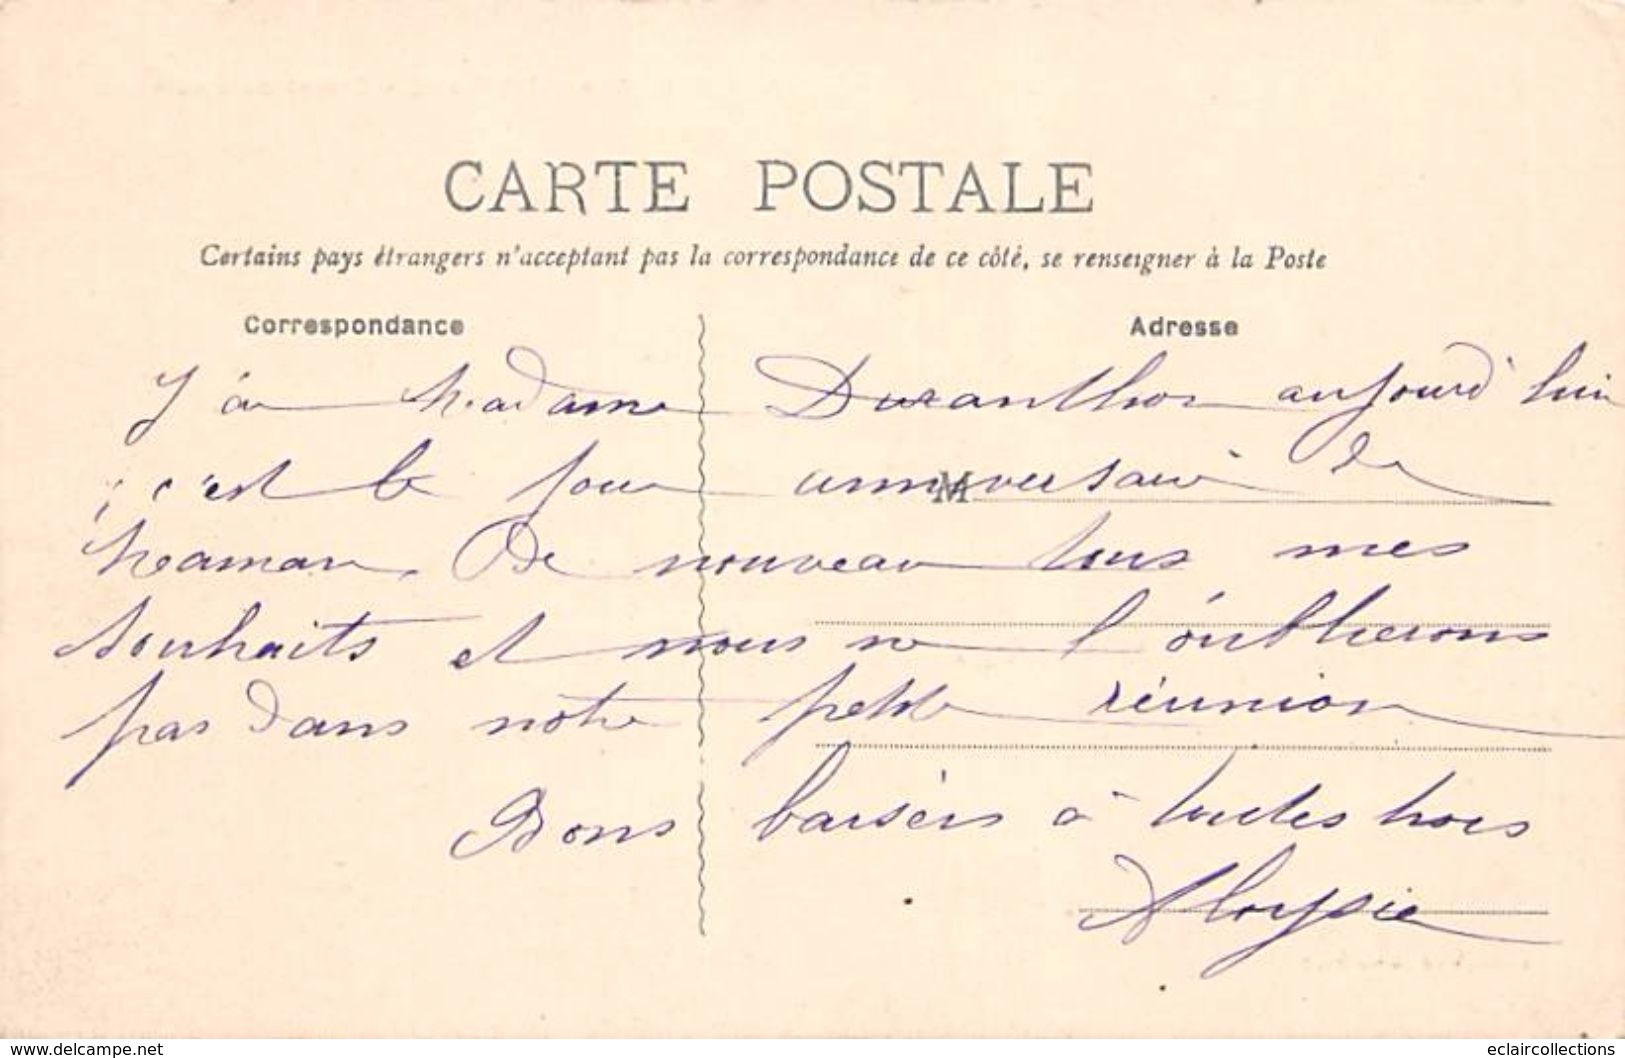 CARTE POSTALE
Certains pays étrangers n'acceptant pas la correspondance de ce côté, se renseigner à la Poste
Correspondance
Adresse
J'ai Madame Duranthon aujourd'hui
c'est le jour anniversaire de
M
Maman. De nouveau tous mes
souhaits et nous ne l'oublierons
pas dans notre petite réunion
Bons baisers à toutes trois
Aloysie
www.delcampe.net
eclaircollections